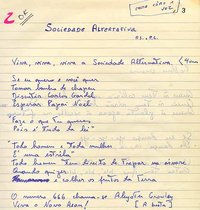 2 OK
3
SOCIEDADE ALTERNATIVA
Viva, viva, viva a Sociedade Alternativa
Se eu quero e você quer
Tomar banho de chapéu
Discutir Carlos Gardel
Esperar Papai Noel
"Faze o que tu queres
Pois é tudo da lei"
"Todo homem e toda mulher
É uma estrela
Todo homem tem direito de trepar na árvore
Quando quizer
e colher os frutos da terra
O numero 666 chama-se Aleyster Crowley
Viva o Novo Aeon!